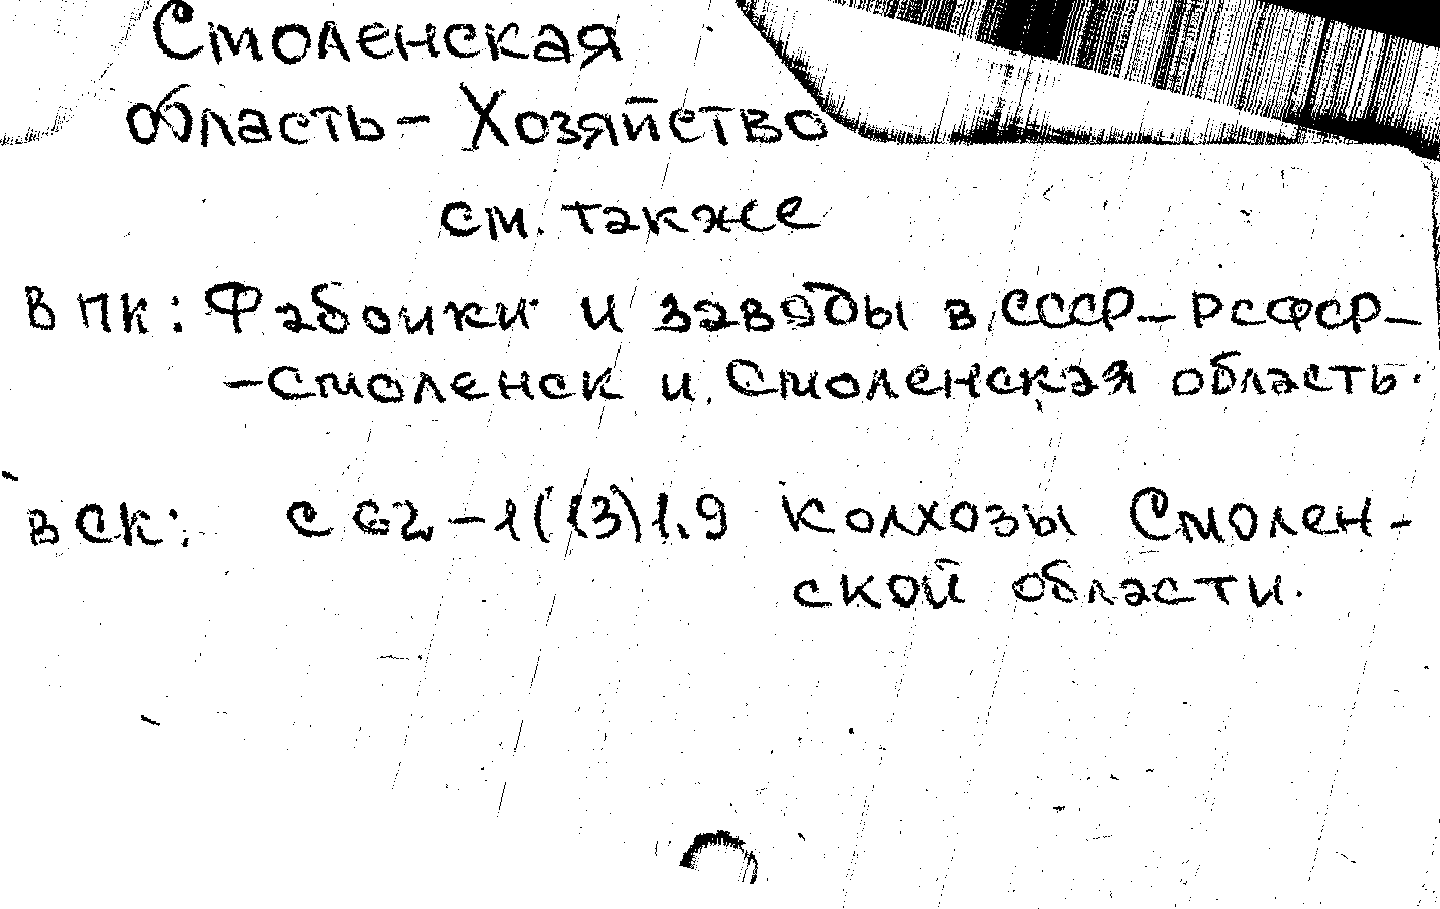 Смоленская
область - Хозяйство
см. также
в ПК: Фабрики и заводы в СССР - РСФСР -
- Смоленск и Смоленская область.
в СК: С62-1(13)1.9 Колхозы Смолен-
ской области.